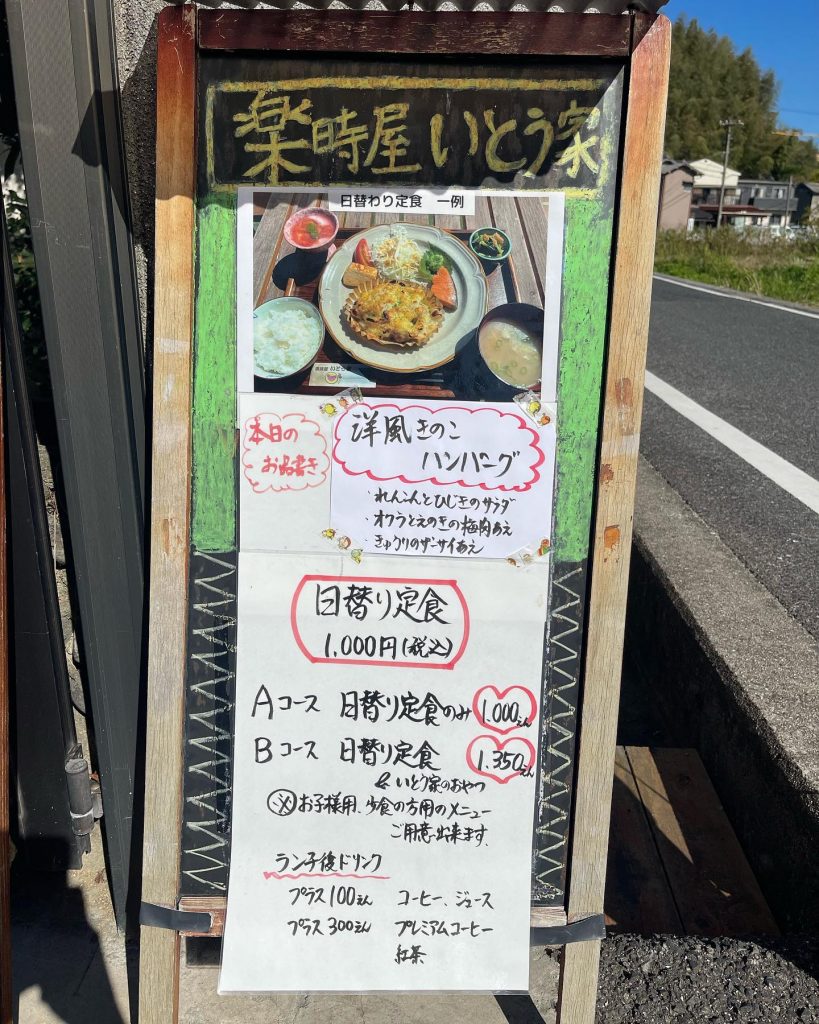 楽時屋 いとう家
日替わり定食 一例
本日の
お品書き
洋風きのこ
ハンバーグ
・れんこんとひじきのサラダ
・オクラとえのきの梅肉あえ
・きゅうりのザーサイあえ
日替り定食
1,000円(税込)
Aコース 日替り定食のみ 1.000えん
Bコース 日替り定食 1.350えん
& いとう家のおやつ
※お子様用、少食の方用のメニュー
ご用意出来ます。
ランチ後ドリンク
プラス100えん コーヒー、ジュース
プラス300えん プレミアムコーヒー
紅茶